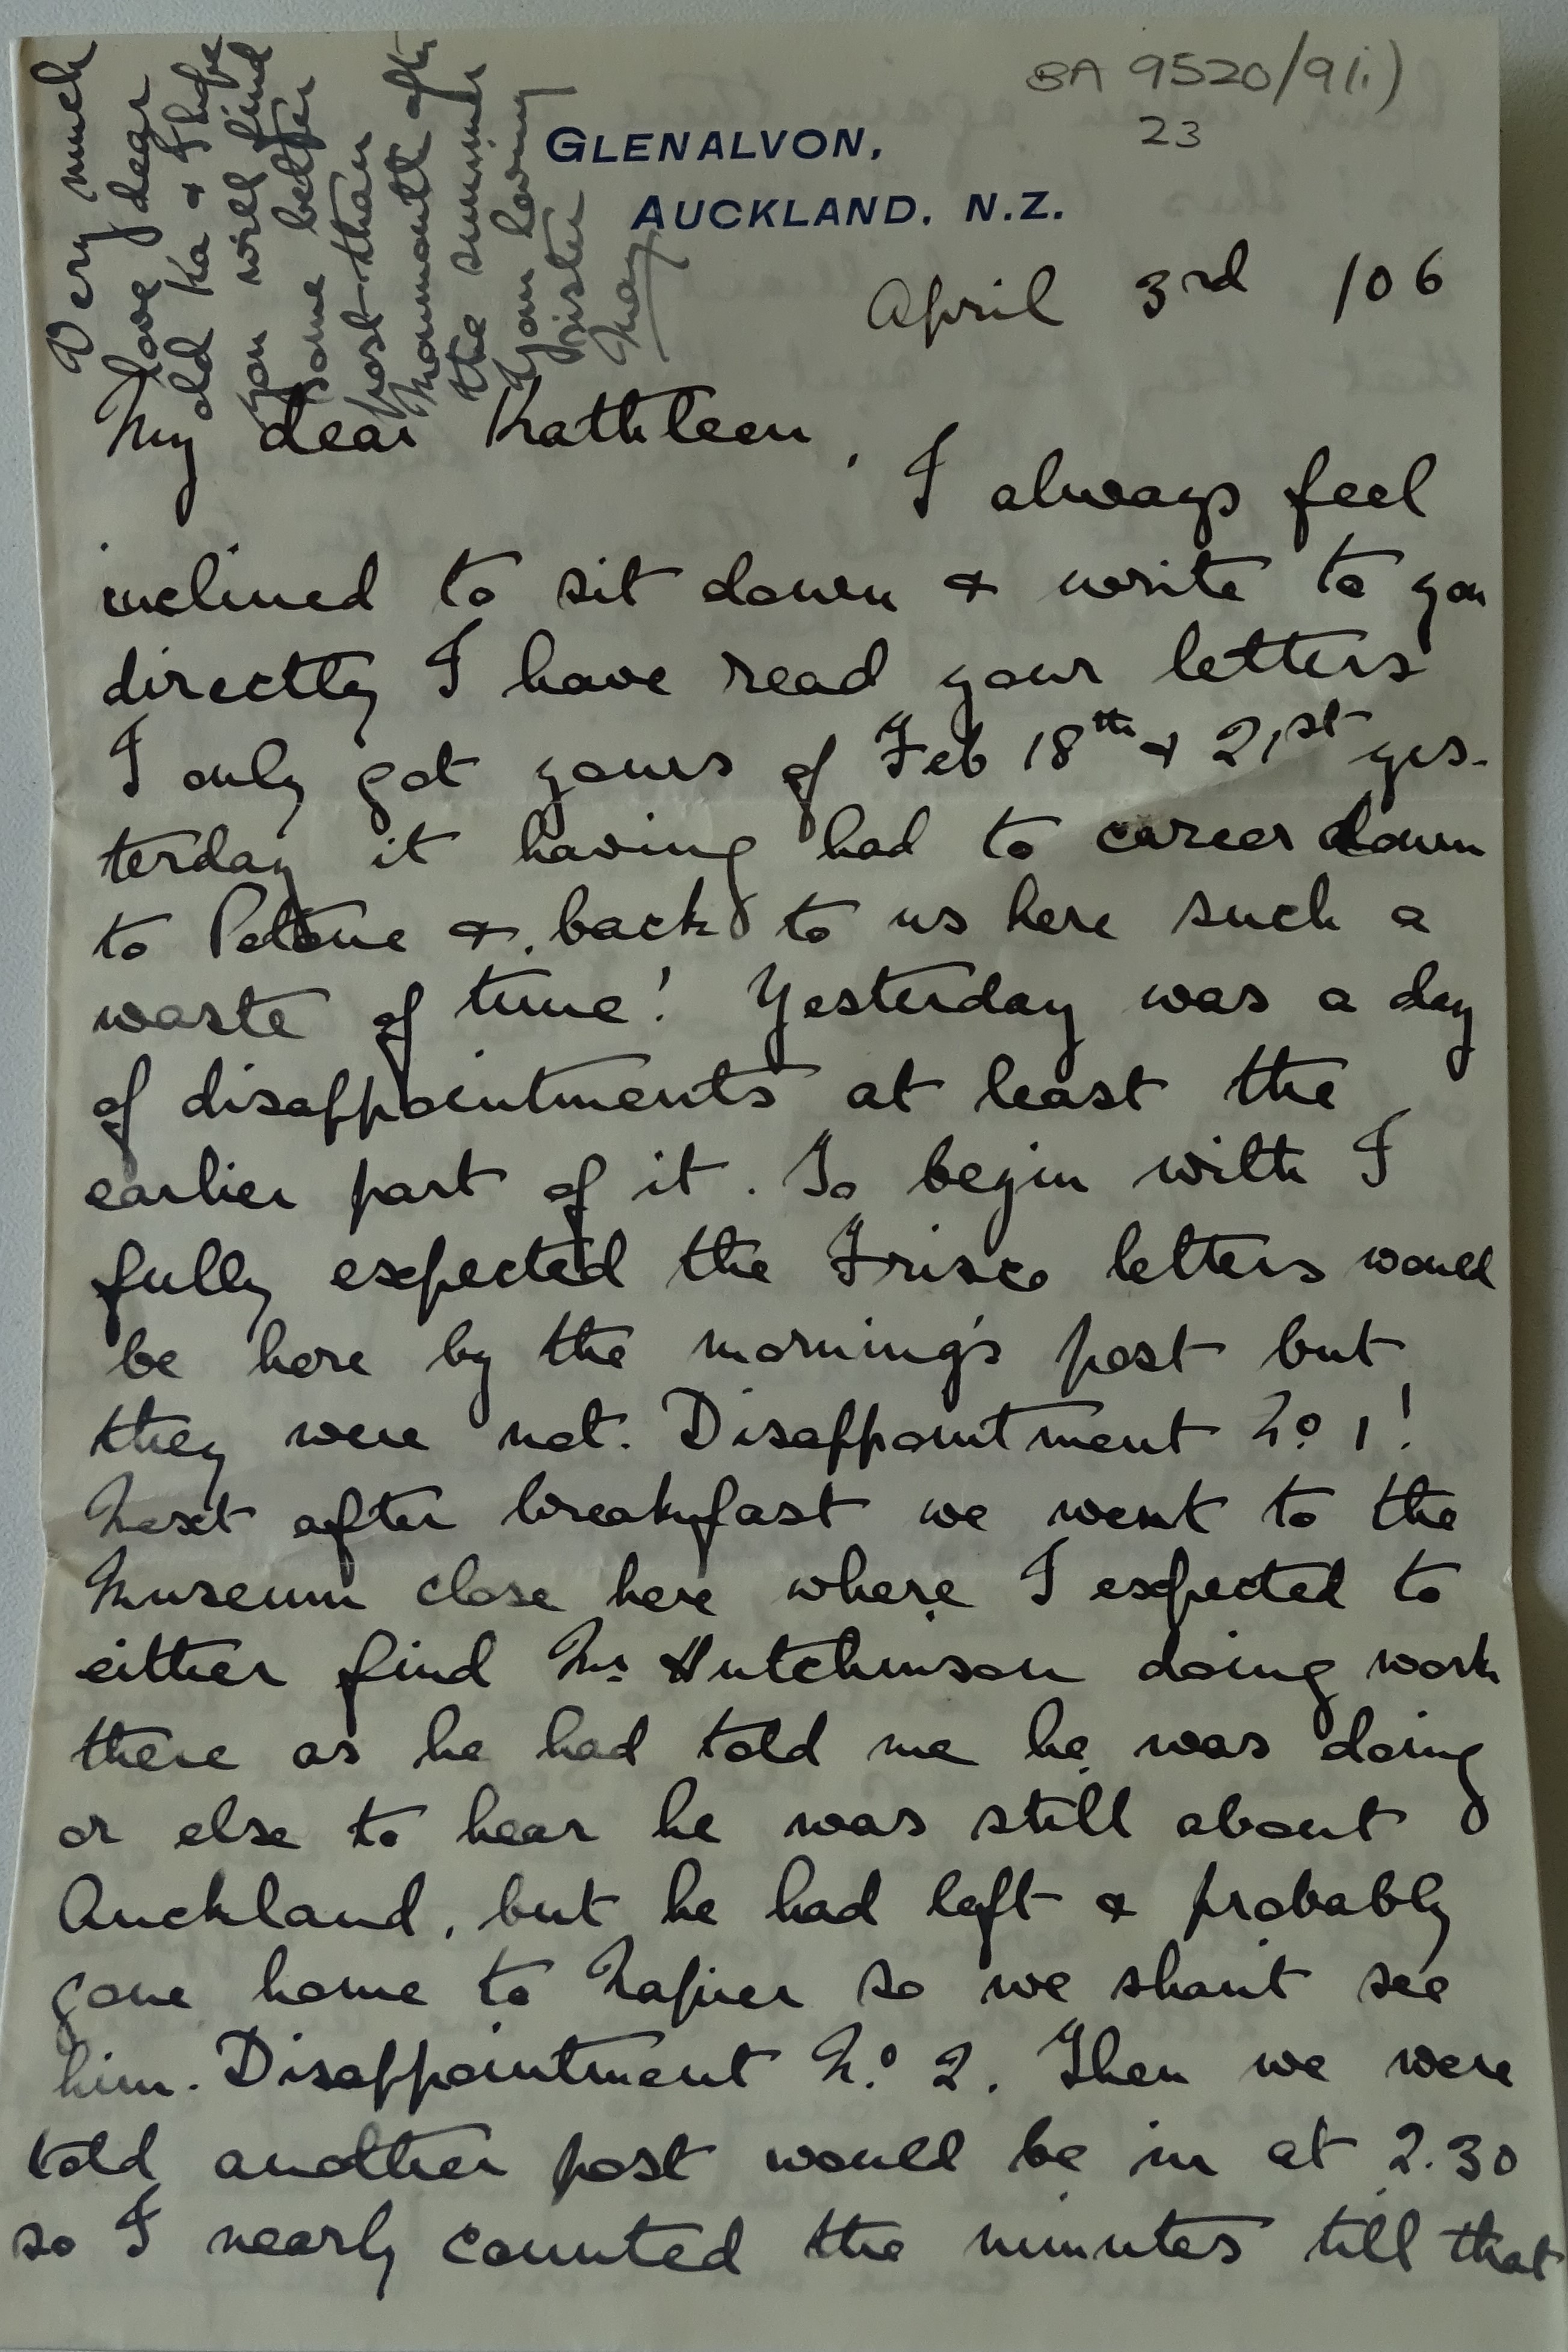 BA 9520/9(i)
23
GLENALVON,
AUCKLAND, N.Z.
April 3rd /06
Very much
love dear
old Ka & I hope
you will find
some better
post than
Monmouth after
the summer
Your loving
sister
May
My dear Kathleen,
I always feel
inclined to sit down & write to you
directly I have read your letters
I only got yours of Feb 18th & 21st yes-
terday it having had to career down
to Petone &. back to us here such a
waste of time! Yesterday was a day
of disappointments at least the
earlier part of it. To begin with I
fully expected the Frisco letters would
be here by the morning's post but
they were not. Disappointment No 1!
Next after breakfast we went to the
Museum close here where I expected to
either find Mr Hutchinson doing work
there as he had told me he was doing
or else to hear he was still about
Auckland, but he had left & probably
gone home to Napier so we shant see
him. Disappointment No. 2. Then we were
told another post would be in at 2.30
so I nearly counted the minutes till that